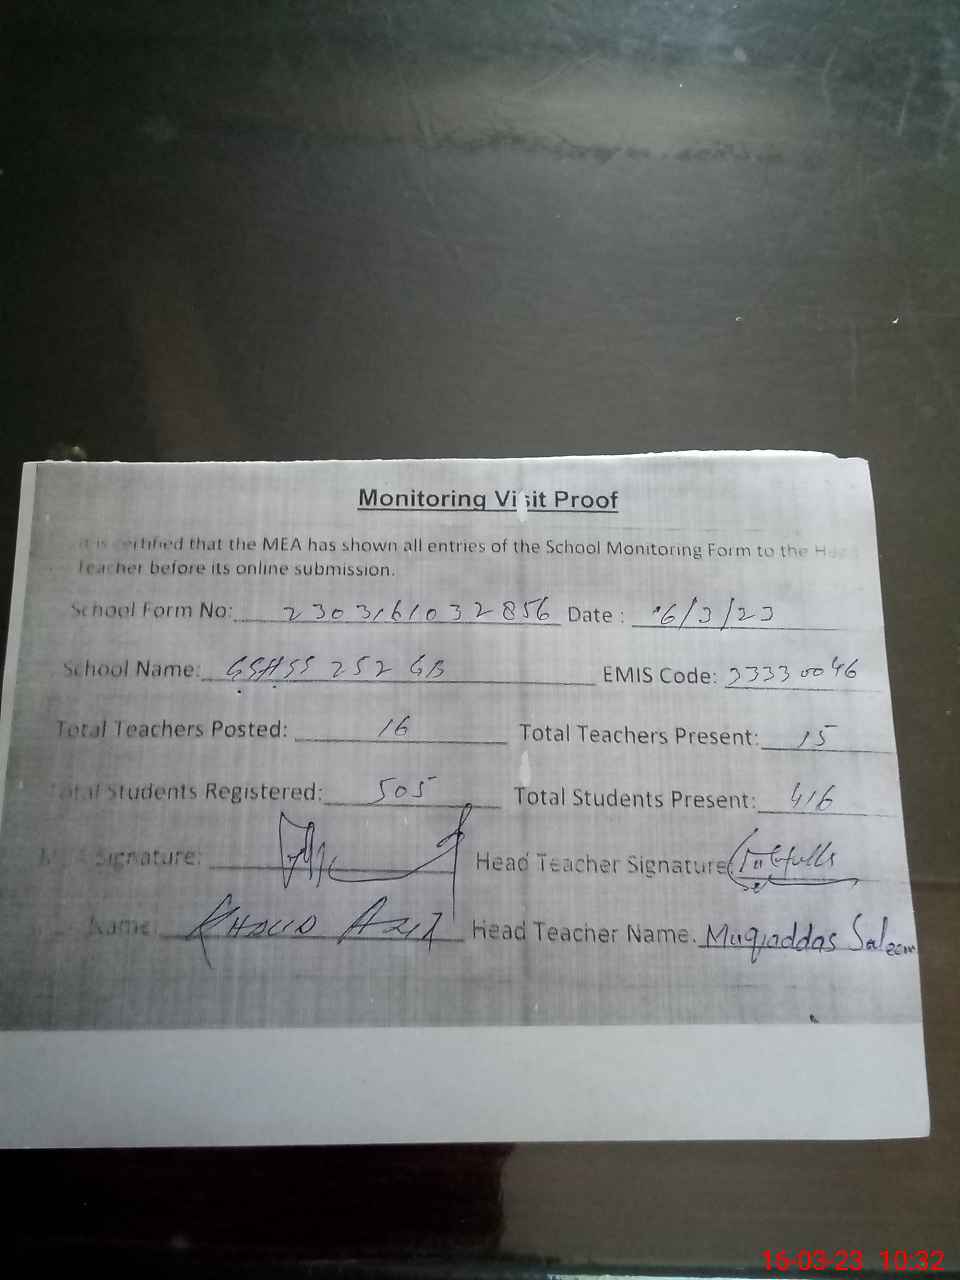 Monitoring Visit Proof
It is certified that the MEA has shown all entries of the School Monitoring Form to the Head
Teacher before its online submission.
School Form No: 2303161032856 Date : 16/3/23
School Name: GGHSS 252 GB EMIS Code: 33330046
Total Teachers Posted: 16 Total Teachers Present: 15
Total Students Registered: 505 Total Students Present: 416
MEA Signature: Head Teacher Signature
Name: KHALID AZIZ Head Teacher Name. Muqaddas Saleem
16-03-23 10:32